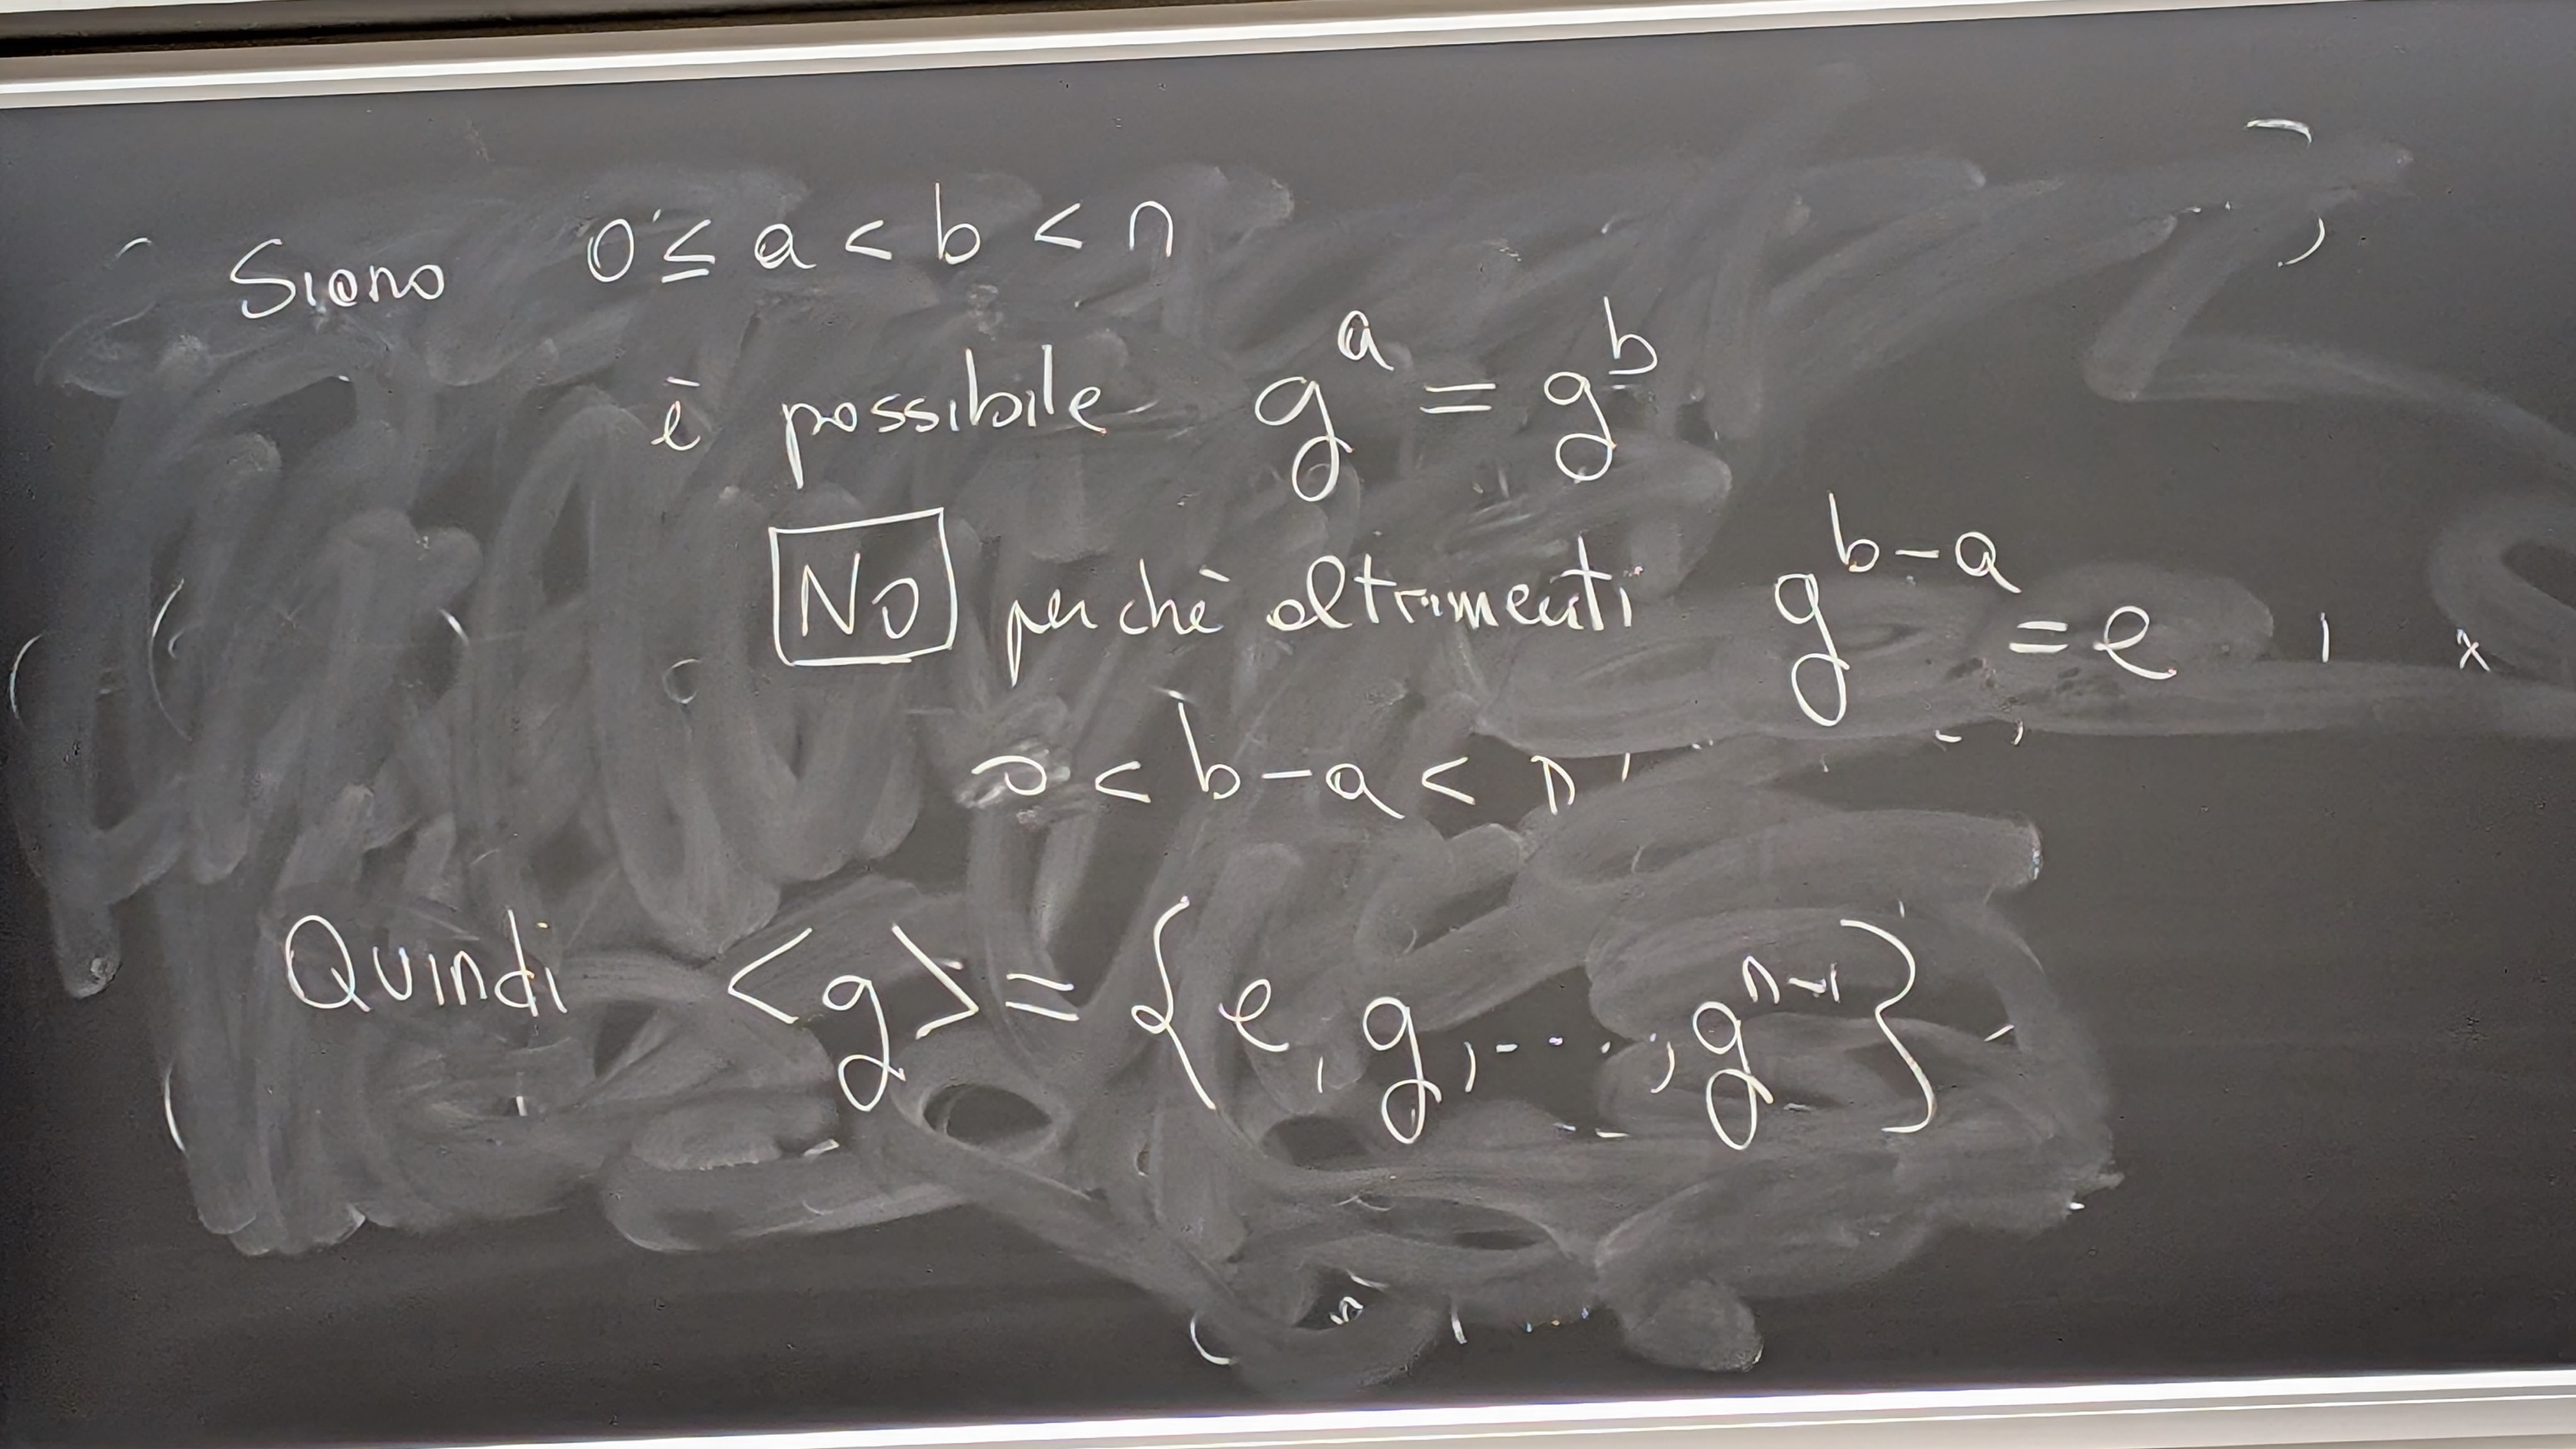 Siano 0 ≤ a < b < n
è possibile g^a = g^b
NO perchè altrimenti g^{b-a} = e
0 < b-a < n
Quindi <g> = {e, g, ...., g^{n-1}}